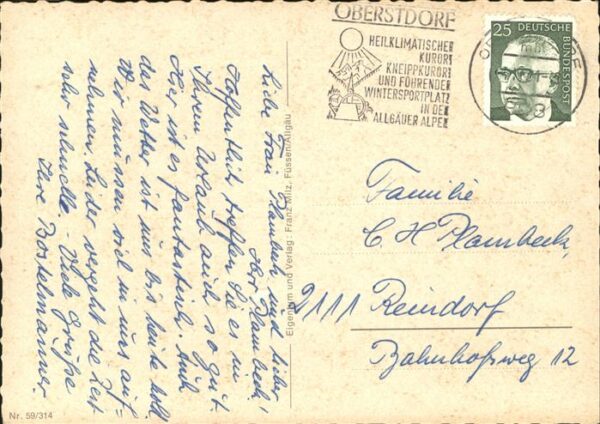 Liebe Frau Plambeck und lieber
Herr Plambeck!
Hoffentlich treffen Sie es in
Ihrem Urlaub auch so gut.
Hier ist es fantastisch. Auch
das Wetter ist uns bis heute holt.
Wir müssen viel in uns auf=
nehmen. Leider vergeht die Zeit
sehr schnelle. - Viele Grüße
Ihre Bostelmänner
Eigentum und Verlag: Franz Milz, Füssen/Allgäu
Nr. 59/314
OBERSTDORF
HEILKLIMATISCHER
KURORT
KNEIPPKURORT
UND FÜHRENDER
WINTERSPORTPLATZ
IN DEN
ALLGÄUER ALPEN
25
DEUTSCHE
BUNDESPOST
Familie
C H Plambeck,
2111 Reindorf
Bahnhofsweg 12